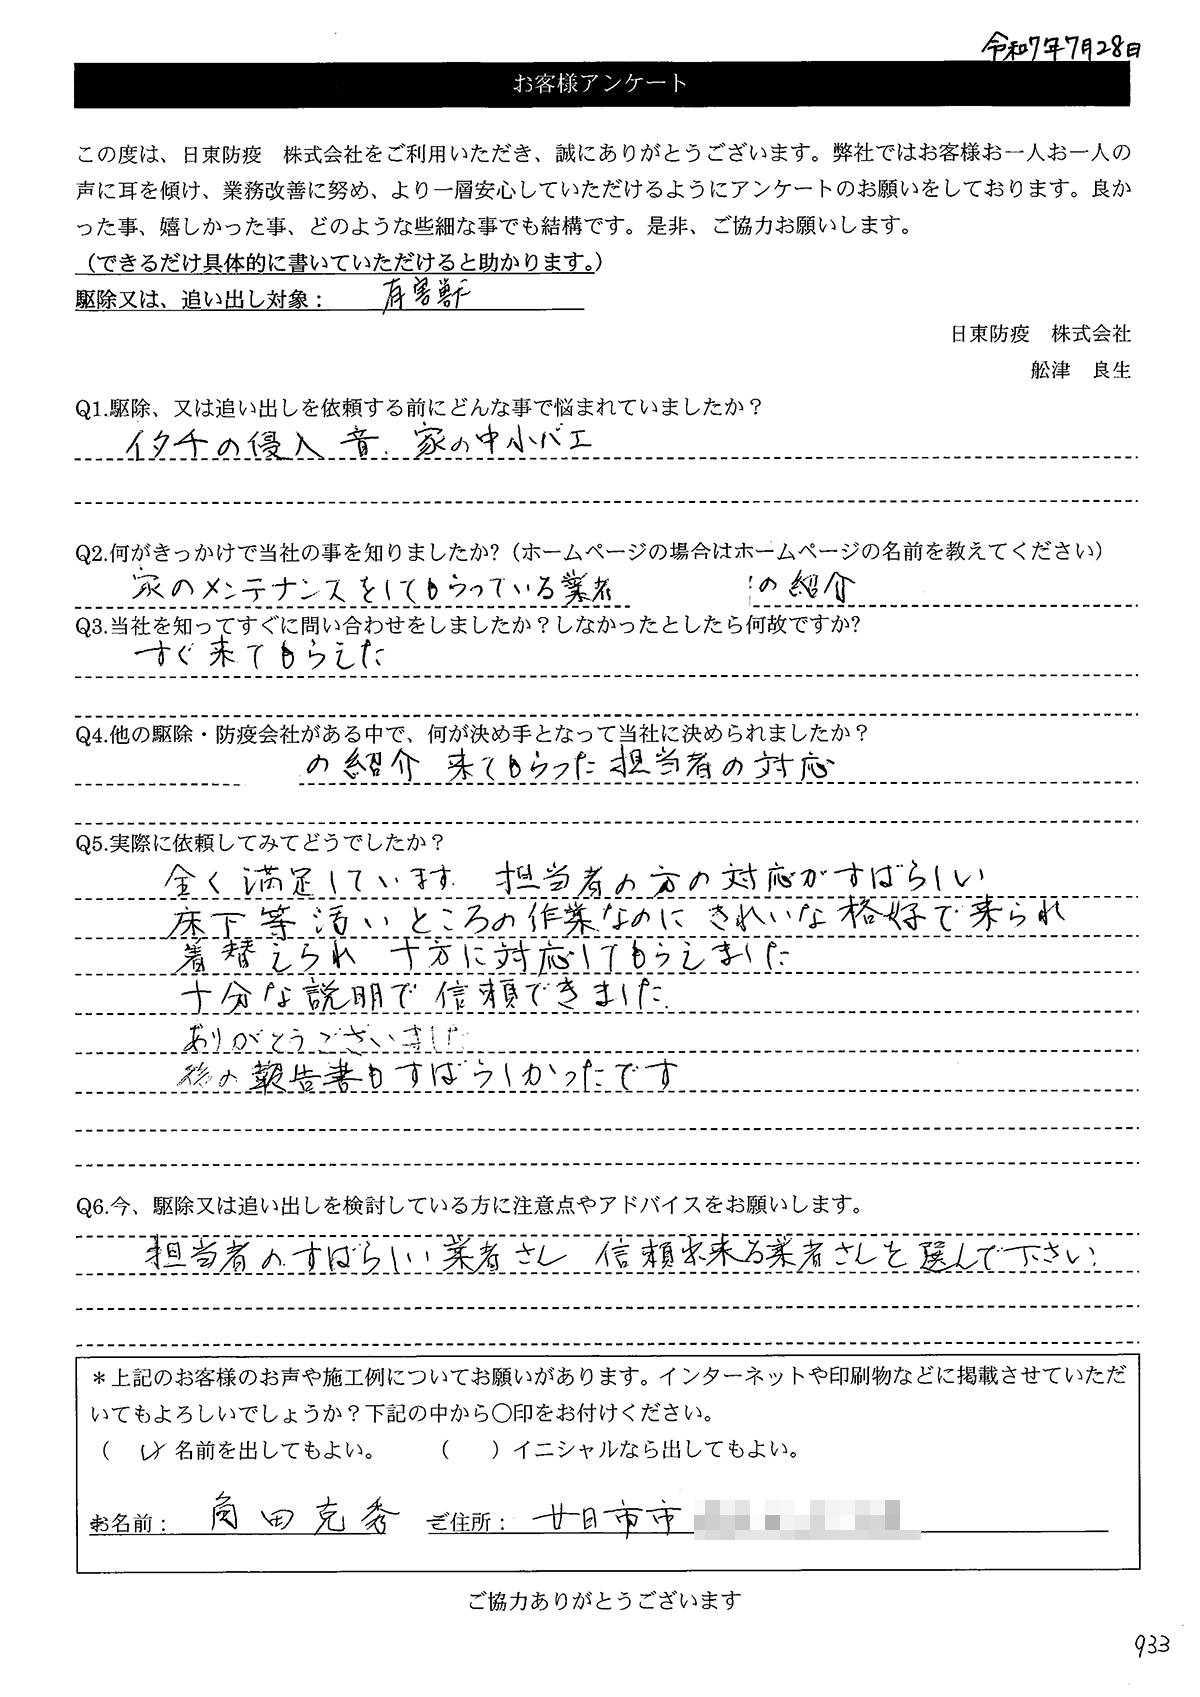 令和7年7月28日
お客様アンケート
この度は、日東防疫　株式会社をご利用いただき、誠にありがとうございます。弊社ではお客様お一人お一人の
声に耳を傾け、業務改善に努め、より一層安心していただけるようにアンケートのお願いをしております。良か
った事、嬉しかった事、どのような些細な事でも結構です。是非、ご協力お願いします。
（できるだけ具体的に書いていただけると助かります。）
駆除又は、追い出し対象： 有害獣
日東防疫　株式会社
舩津　良生
Q1.駆除、又は追い出しを依頼する前にどんな事で悩まれていましたか？
イタチの侵入 音、家の中小バエ
Q2.何がきっかけで当社の事を知りましたか?（ホームページの場合はホームページの名前を教えてください）
家のメンテナンスをしてもらっている業者 の紹介
Q3.当社を知ってすぐに問い合わせをしましたか？しなかったとしたら何故ですか?
すぐ来てもらえた
Q4.他の駆除・防疫会社がある中で、何が決め手となって当社に決められましたか？
の紹介 来てもらった担当者の対応
Q5.実際に依頼してみてどうでしたか？
全く満足しています。担当者の方の対応がすばらしい
床下等 汚いところの作業なのに きれいな格好で来られ
着替えられ 十方に対応してもらえました
十分な説明で信頼できました。
ありがとうございました
後の報告書もすばらしかったです
Q6.今、駆除又は追い出しを検討している方に注意点やアドバイスをお願いします。
担当者のすばらしい業者さん 信頼出来る業者さんを選んで下さい
＊上記のお客様のお声や施工例についてお願いがあります。インターネットや印刷物などに掲載させていただ
いてもよろしいでしょうか？下記の中から〇印をお付けください。
（ レ）名前を出してもよい。 （　　）イニシャルなら出してもよい。
お名前： 角田克秀 ご住所： 廿日市市
ご協力ありがとうございます
933